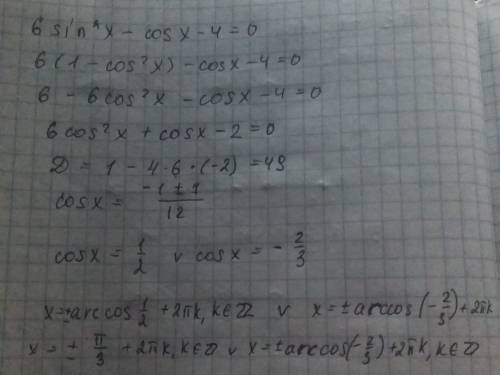 6 sin²x - cosx - 4 = 0
6(1 - cos²x) - cosx - 4 = 0
6 - 6cos²x - cosx - 4 = 0
6cos²x + cosx - 2 = 0
D = 1 - 4·6·(-2) = 49
cosx = (-1 ± 7)/12
cosx = 1/2 v cosx = -2/3
x = ±arccos 1/2 + 2πk, k∈Z v x = ±arccos(-2/3) + 2πk
x = ± π/3 + 2πk, k∈Z v x = ±arccos(-2/3) + 2πk, k∈Z